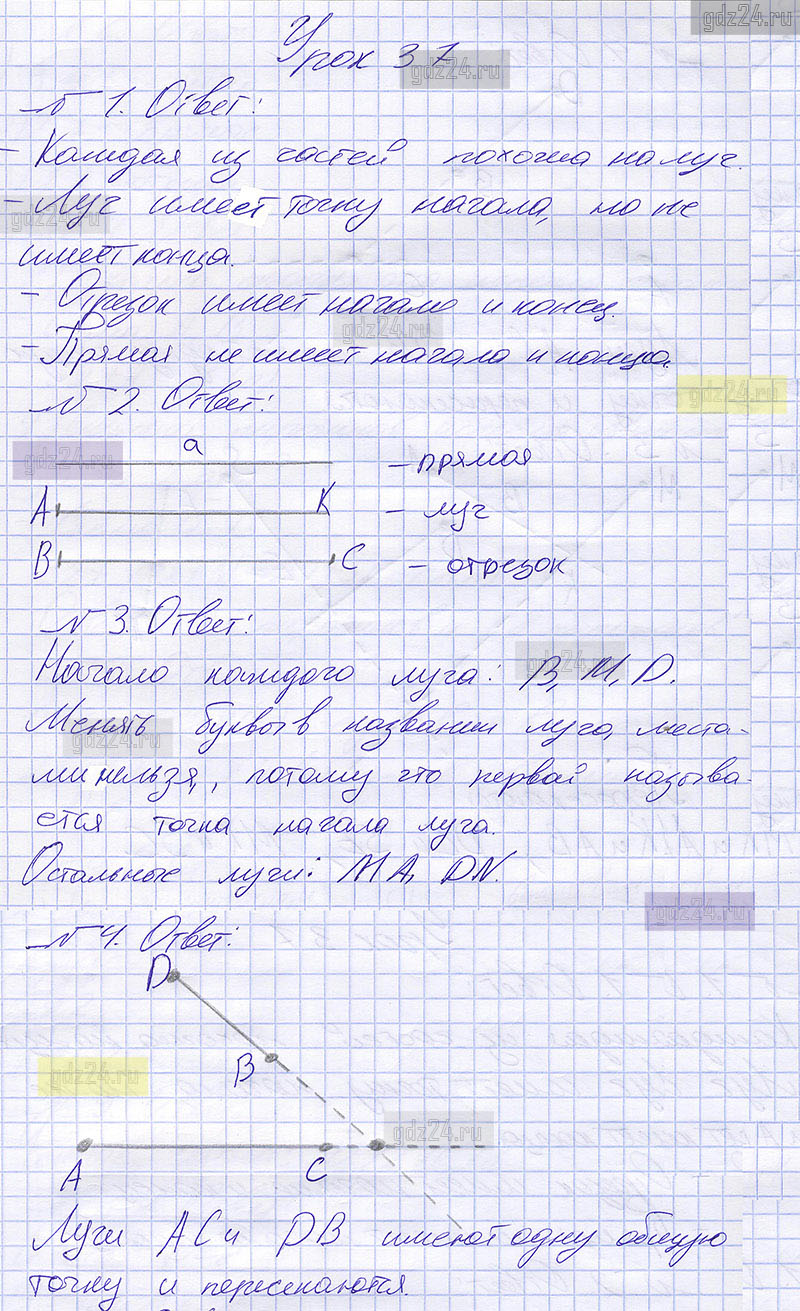 gdz24.ru
Урок 37
gdz24.ru
№ 1. Ответ:
- Каждая из частей похожа на луч.
- Луч имеет точку начала, но не
gdz24.ru
имеет конца.
- Отрезок имеет начало и конец.
gdz24.ru
- Прямая не имеет начала и конца.
№ 2. Ответ:
gdz24.ru
gdz24.ru
a - прямая
A K - луч
B C - отрезок
№ 3. Ответ:
Начало каждого луча: B, M, D.
gdz24.ru
Менять буквы в названии луча, места-
gdz24.ru
ми нельзя, потому что первой называ-
ется точка начала луча.
Остальные лучи: MA, DN.
gdz24.ru
№ 4. Ответ:
D
B
gdz24.ru
gdz24.ru
A C
Лучи AC и DB имеют одну общую
точку и пересекаются.